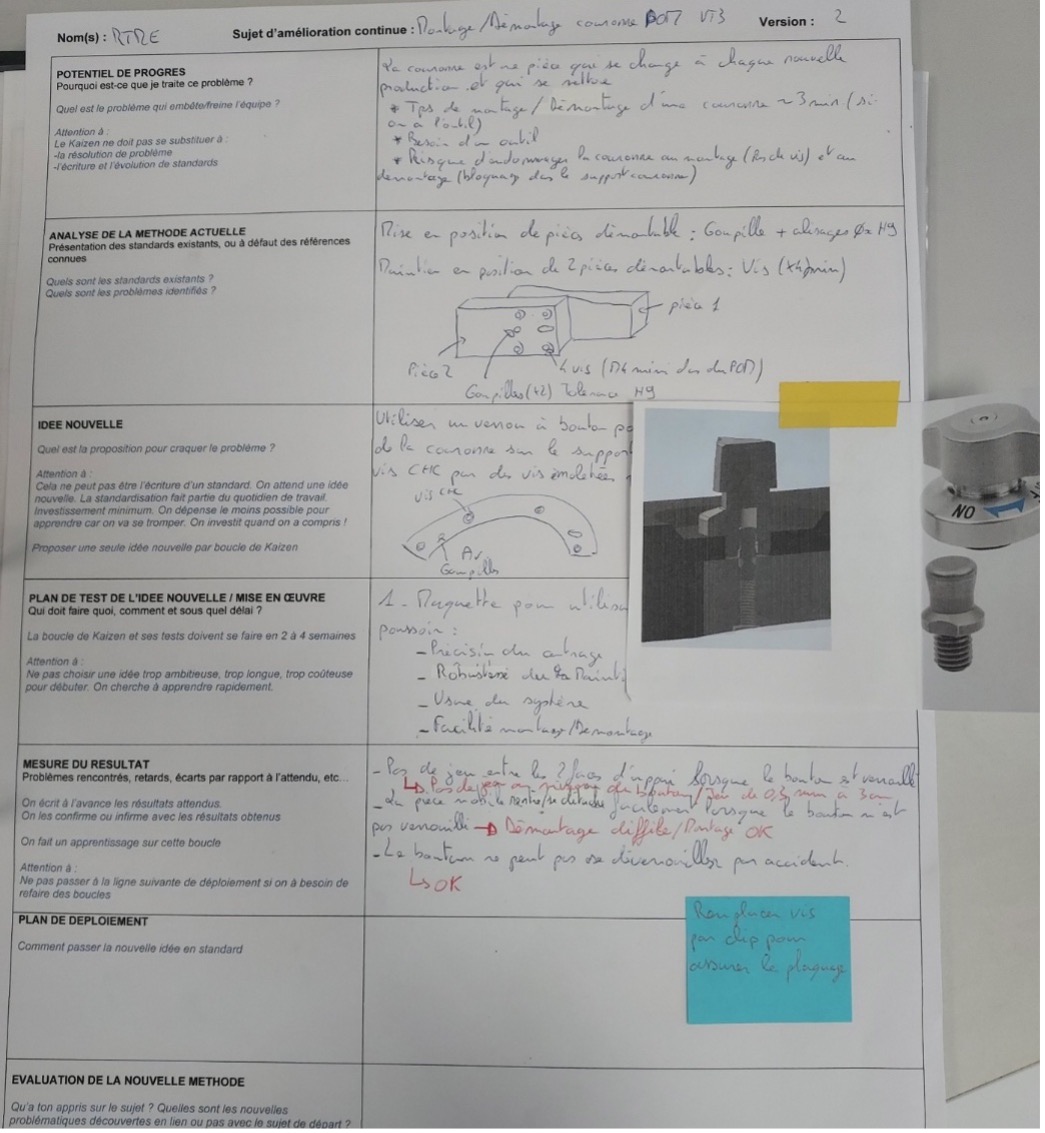 Nom(s) : RTRE
Sujet d'amélioration continue : Montage/Démontage couronne POM VT3
Version : 2
POTENTIEL DE PROGRES
Pourquoi est-ce que je traite ce problème ?
Quel est le problème qui embête/freine l'équipe ?
Attention à :
Le Kaizen ne doit pas se substituer à :
-la résolution de problème
-l'écriture et l'évolution de standards
La couronne est une pièce qui se change à chaque nouvelle
production et qui se nettoie
* Tps de montage/Démontage d'une couronne ~3min (si
on a l'outil)
* Besoin d'un outil
* Risque d'endommager la couronne au montage (Pas de vis) et au
démontage (bloquage dans le support couronne)
ANALYSE DE LA METHODE ACTUELLE
Présentation des standards existants, ou à défaut des références
connues
Quels sont les standards existants ?
Quels sont les problèmes identifiés ?
Mise en position de pièces démontable : Goupille + alésages H9
Maintien en position de 2 pièces démontables : Vis (x4 min)
pièce 1
Pièce 2
4 vis (M4 mini dans du POM)
Goupilles (x2) Tolérance H9
IDEE NOUVELLE
Quel est la proposition pour craquer le problème ?
Attention à :
Cela ne peut pas être l'écriture d'un standard. On attend une idée
nouvelle. La standardisation fait partie du quotidien de travail.
Investissement minimum. On dépense le moins possible pour
apprendre car on va se tromper. On investit quand on a compris !
Proposer une seule idée nouvelle par boucle de Kaizen
Utiliser un verrou à bouton po
de la couronne sur le suppor
vis CHC par des vis moletées
vis CHC
Goupilles
ON
PLAN DE TEST DE L'IDEE NOUVELLE / MISE EN ŒUVRE
Qui doit faire quoi, comment et sous quel délai ?
La boucle de Kaizen et ses tests doivent se faire en 2 à 4 semaines
Attention à :
Ne pas choisir une idée trop ambitieuse, trop longue, trop coûteuse
pour débuter. On cherche à apprendre rapidement.
1 - Maquette pour utilisa
poussoir :
- Précision du centrage
- Robustesse du Maint
- Usure du système
- Facilité montage/Démontage
MESURE DU RESULTAT
Problèmes rencontrés, retards, écarts par rapport à l'attendu, etc…
On écrit à l'avance les résultats attendus.
On les confirme ou infirme avec les résultats obtenus
On fait un apprentissage sur cette boucle
Attention à :
Ne pas passer à la ligne suivante de déploiement si on à besoin de
refaire des boucles
- Pas de jeu entre les 2 faces d'appui lorsque le bouton est verrouillé
↳ Pas de jeu au niveau du bouton / Jeu de 0,3 mm à 3cm
- La pièce mobile rentre/se détache facilement lorsque le bouton n'est
pas verrouillé → Démontage diffile/Montage OK
- Le bouton ne peut pas se déverrouiller par accident.
↳ OK
PLAN DE DEPLOIEMENT
Comment passer la nouvelle idée en standard
Remplacer vis
par clip pour
assurer le plaquage
EVALUATION DE LA NOUVELLE METHODE
Qu'a ton appris sur le sujet ? Quelles sont les nouvelles
problématiques découvertes en lien ou pas avec le sujet de départ ?